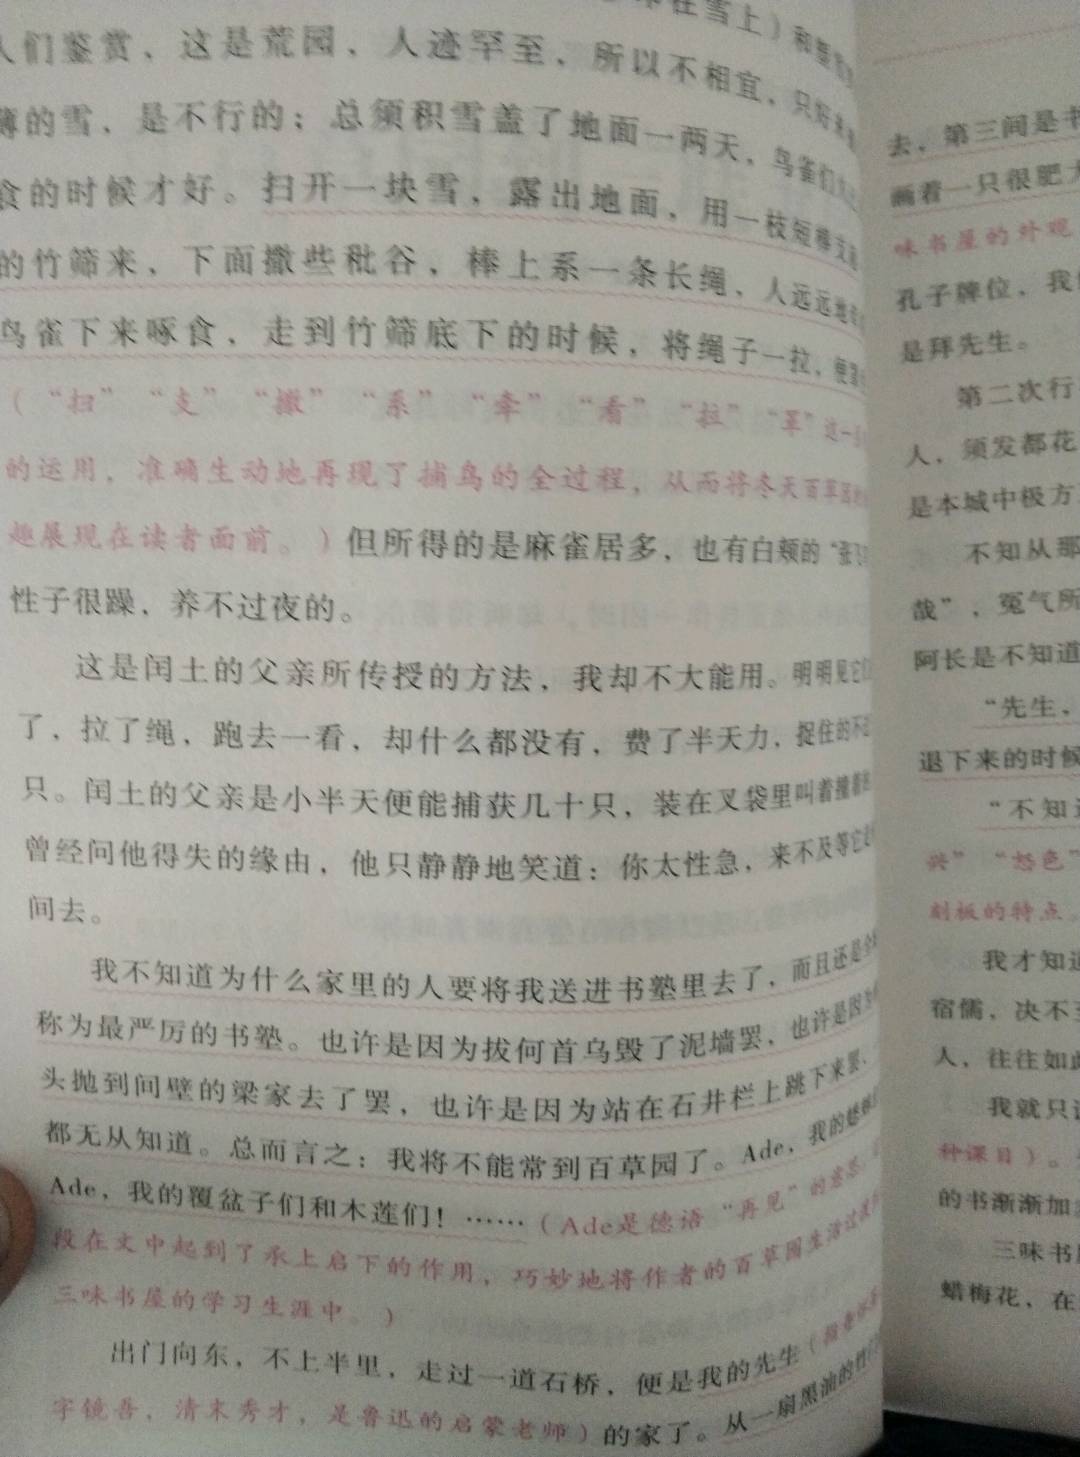 在雪上）和
人们鉴赏，这是荒园，人迹罕至，所以不相宜，只好来
薄的雪，是不行的；总须积雪盖了地面一两天，鸟雀们
食的时候才好。扫开一块雪，露出地面，用一枝短棒支
的竹筛来，下面撒些秕谷，棒上系一条长绳，人远远地
鸟雀下来啄食，走到竹筛底下的时候，将绳子一拉，便
（“扫”“支”“撒”“系”“牵”“看”“拉”“罩”这一
的运用，准确生动地再现了捕鸟的全过程，从而将冬天百草园
趣展现在读者面前。）但所得的是麻雀居多，也有白颊的“张飞
性子很躁，养不过夜的。
这是闰土的父亲所传授的方法，我却不大能用。明明见它
了，拉了绳，跑去一看，却什么都没有，费了半天力，捉住的不
只。闰土的父亲是小半天便能捕获几十只，装在叉袋里叫着撞着
曾经问他得失的缘由，他只静静地笑道：你太性急，来不及等它
间去。
我不知道为什么家里的人要将我送进书塾里去了，而且还是
称为最严厉的书塾。也许是因为拔何首乌毁了泥墙罢，也许是因为
头抛到间壁的梁家去了罢，也许是因为站在石井栏上跳下来罢，
都无从知道。总而言之：我将不能常到百草园了。Ade，我的蟋蟀
Ade，我的覆盆子们和木莲们！……（Ade是德语“再见”的意思，
段在文中起到了承上启下的作用，巧妙地将作者的百草园生活过渡
三味书屋的学习生涯中。）
出门向东，不上半里，走过一道石桥，便是我的先生（
字镜吾，清末秀才，是鲁迅的启蒙老师）的家了。从一扇黑油的竹
去，第三间是书
画着一只很肥大
味书屋的外观
孔子牌位，我
是拜先生。
第二次行
人，须发都花
是本城中极方
不知从那
哉”，冤气所
阿长是不知道
“先生，
退下来的时候
“不知道
兴”“怒色”
刻板的特点。
我才知道
宿儒，决不至
人，往往如此
我就只读
种课目）。
的书渐渐加
三味书屋
蜡梅花，在